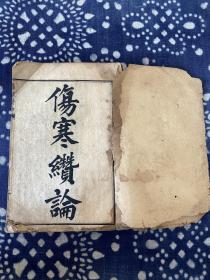 傷寒纘論